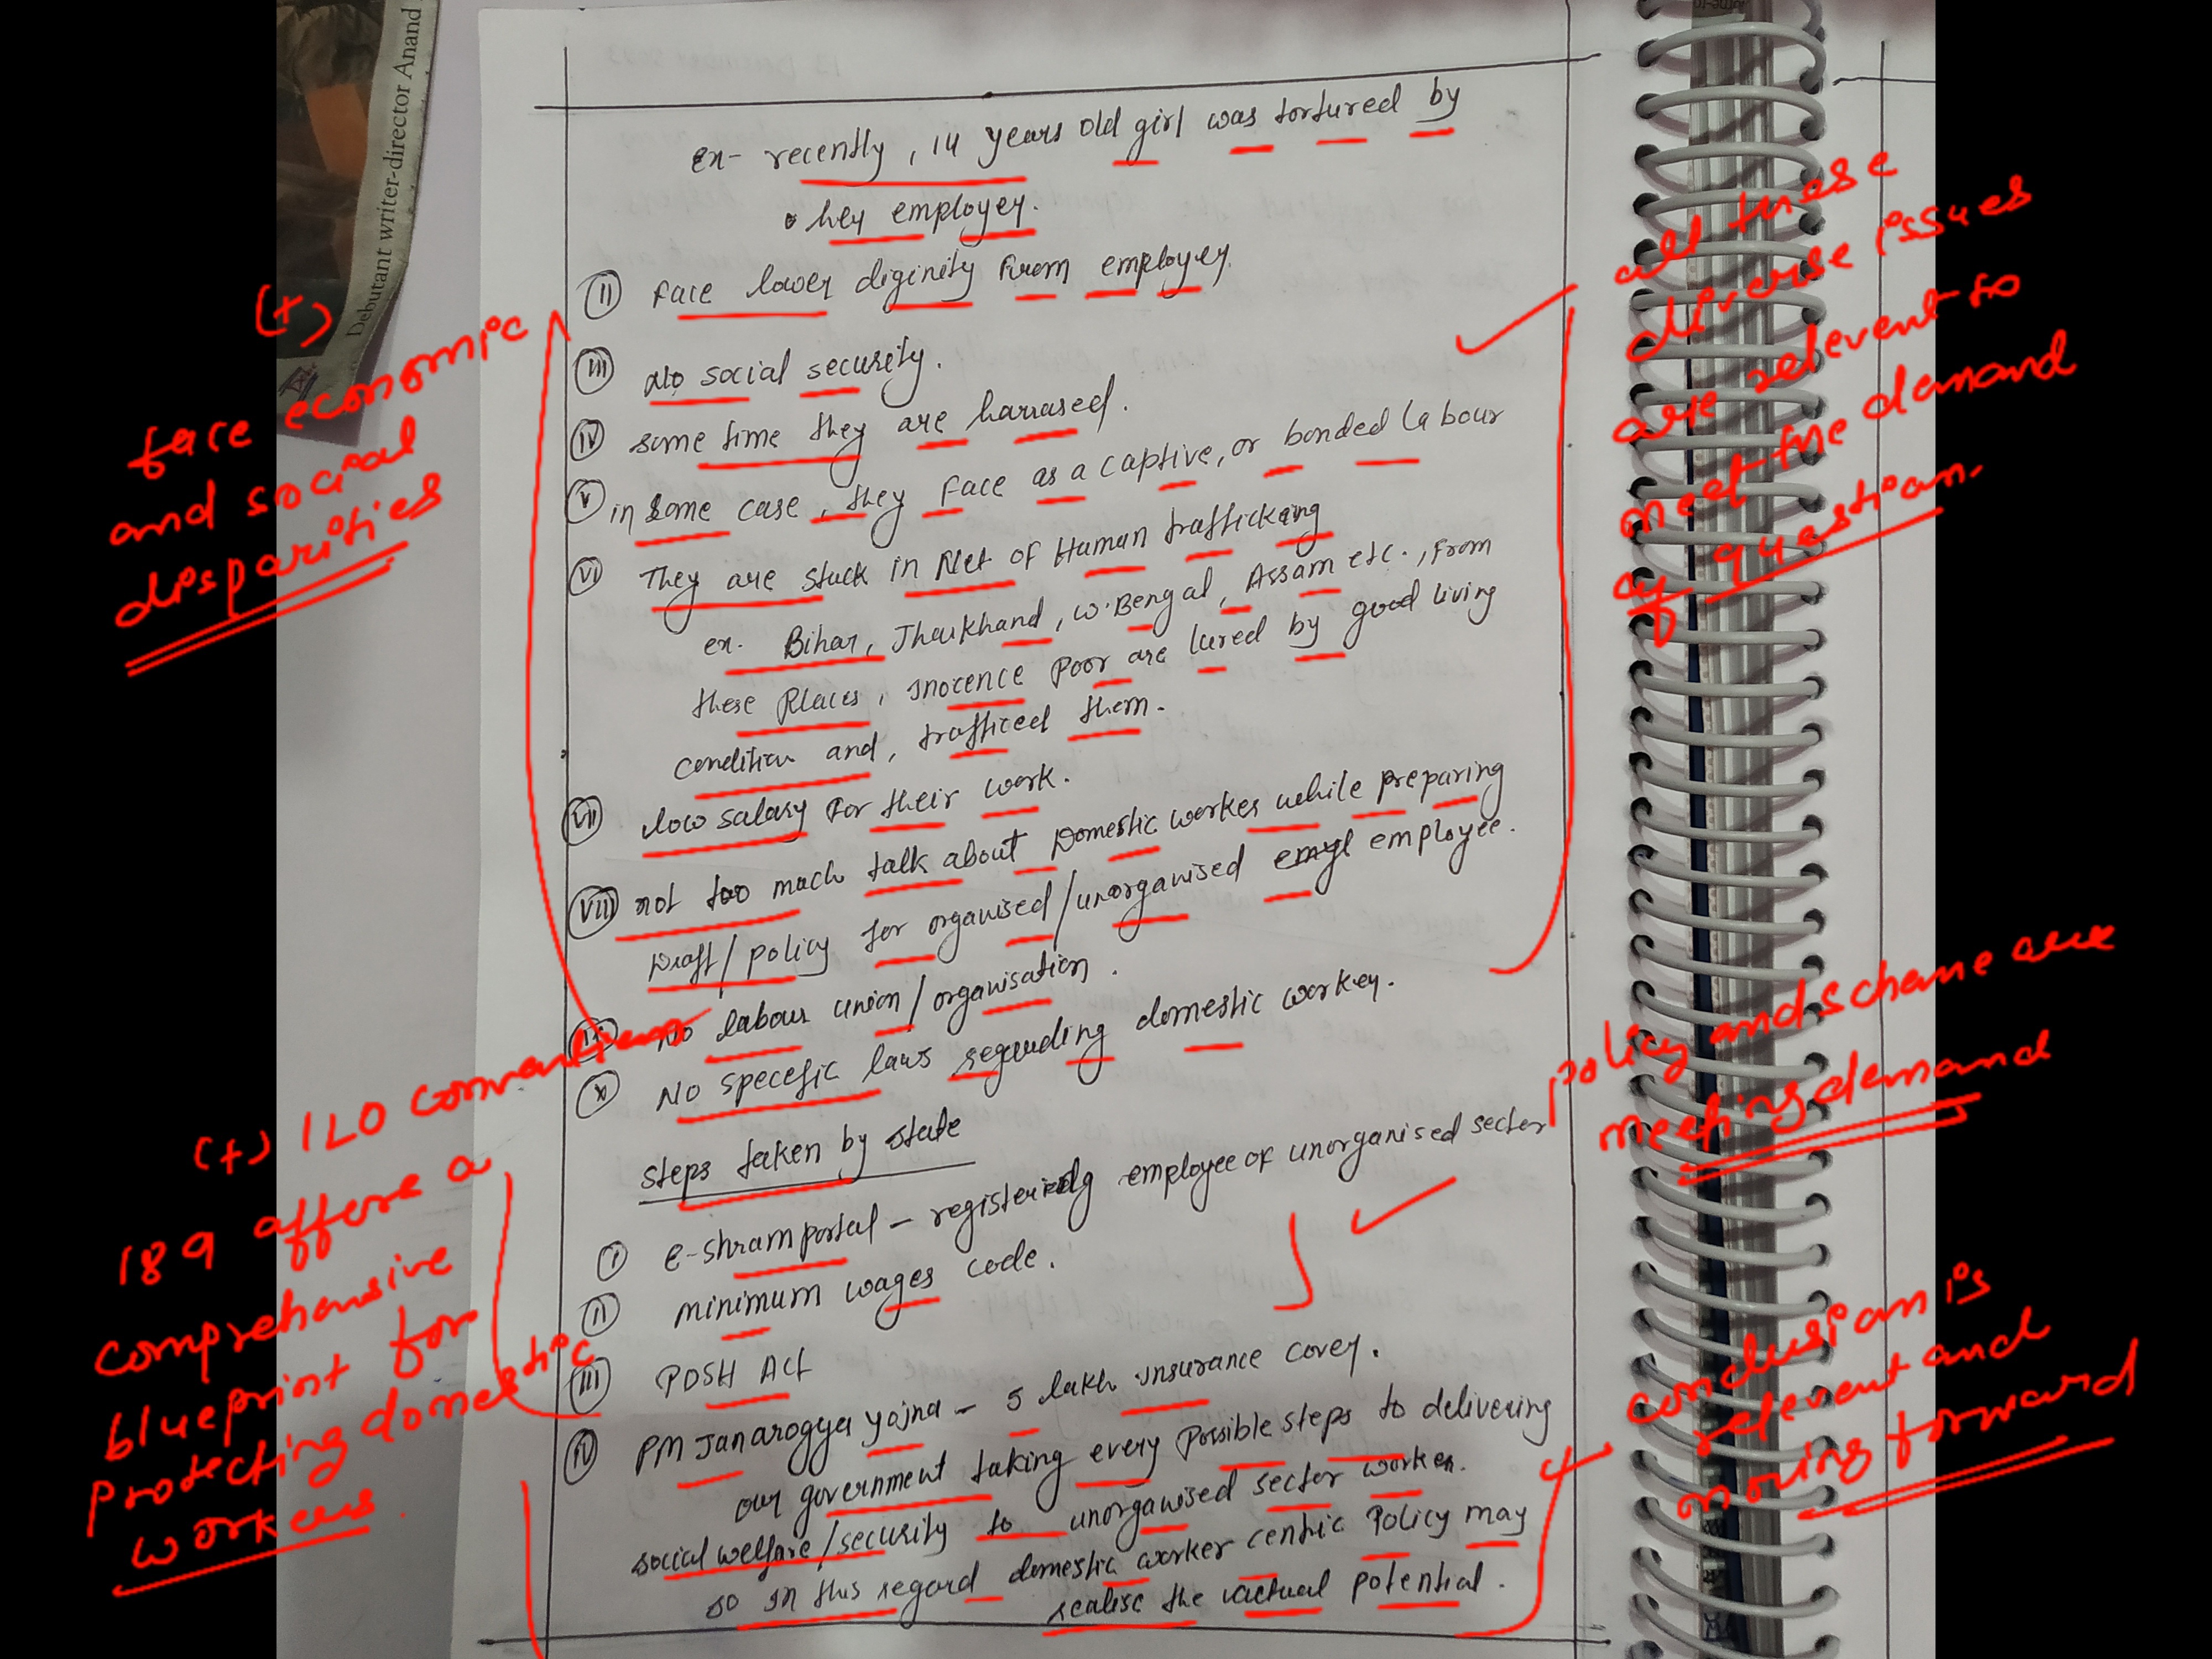 Debutant writer-director Anand
ex- recently, 14 years old girl was tortured by
hey employey.
(ii) Face lower diginity from employey.
(iii) No social security.
(iv) some time they are harrased.
(v) in some case, they face as a captive, or bonded labour
(vi) They are stuck in Net of Human trafficking
ex. Bihar, Jharkhand, w.Bengal, Assam etc., from
these Places, inocence poor are lured by good living
condition and, trafficed them.
(vii) low salary for their work.
(viii) not too much talk about Domestic workes while preparing
Draft/policy for organised/unorganised employee.
(ix) No labour union/organisation.
(x) No specefic laws regarding domestic workey.
steps taken by state
(i) e-shram portal - registering employee of unorganised sector
(ii) minimum wages code.
(iii) POSH Act
(iv) PM Janarogya yojna - 5 lakh insurance covey.
our government taking every possible steps to delivering
social welfare/security to unorganised sector worker.
so in this regard domestic worker centric policy may
realise the actual potential.
(+)
face economic
and social
disparities
(+) ILO convention
189 affore a
comprehensive
blueprint for
protecting domestic
workers.
all these
diverse issues
are relevent to
meet the demand
of question.
policy and scheme are
meeting demand
conclusion is
relevent and
moving forward